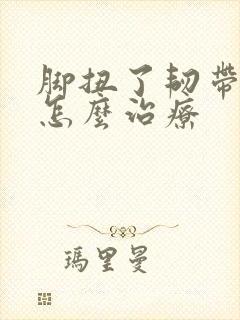 脚扭了韧帶
怎麽治療
瑪里曼